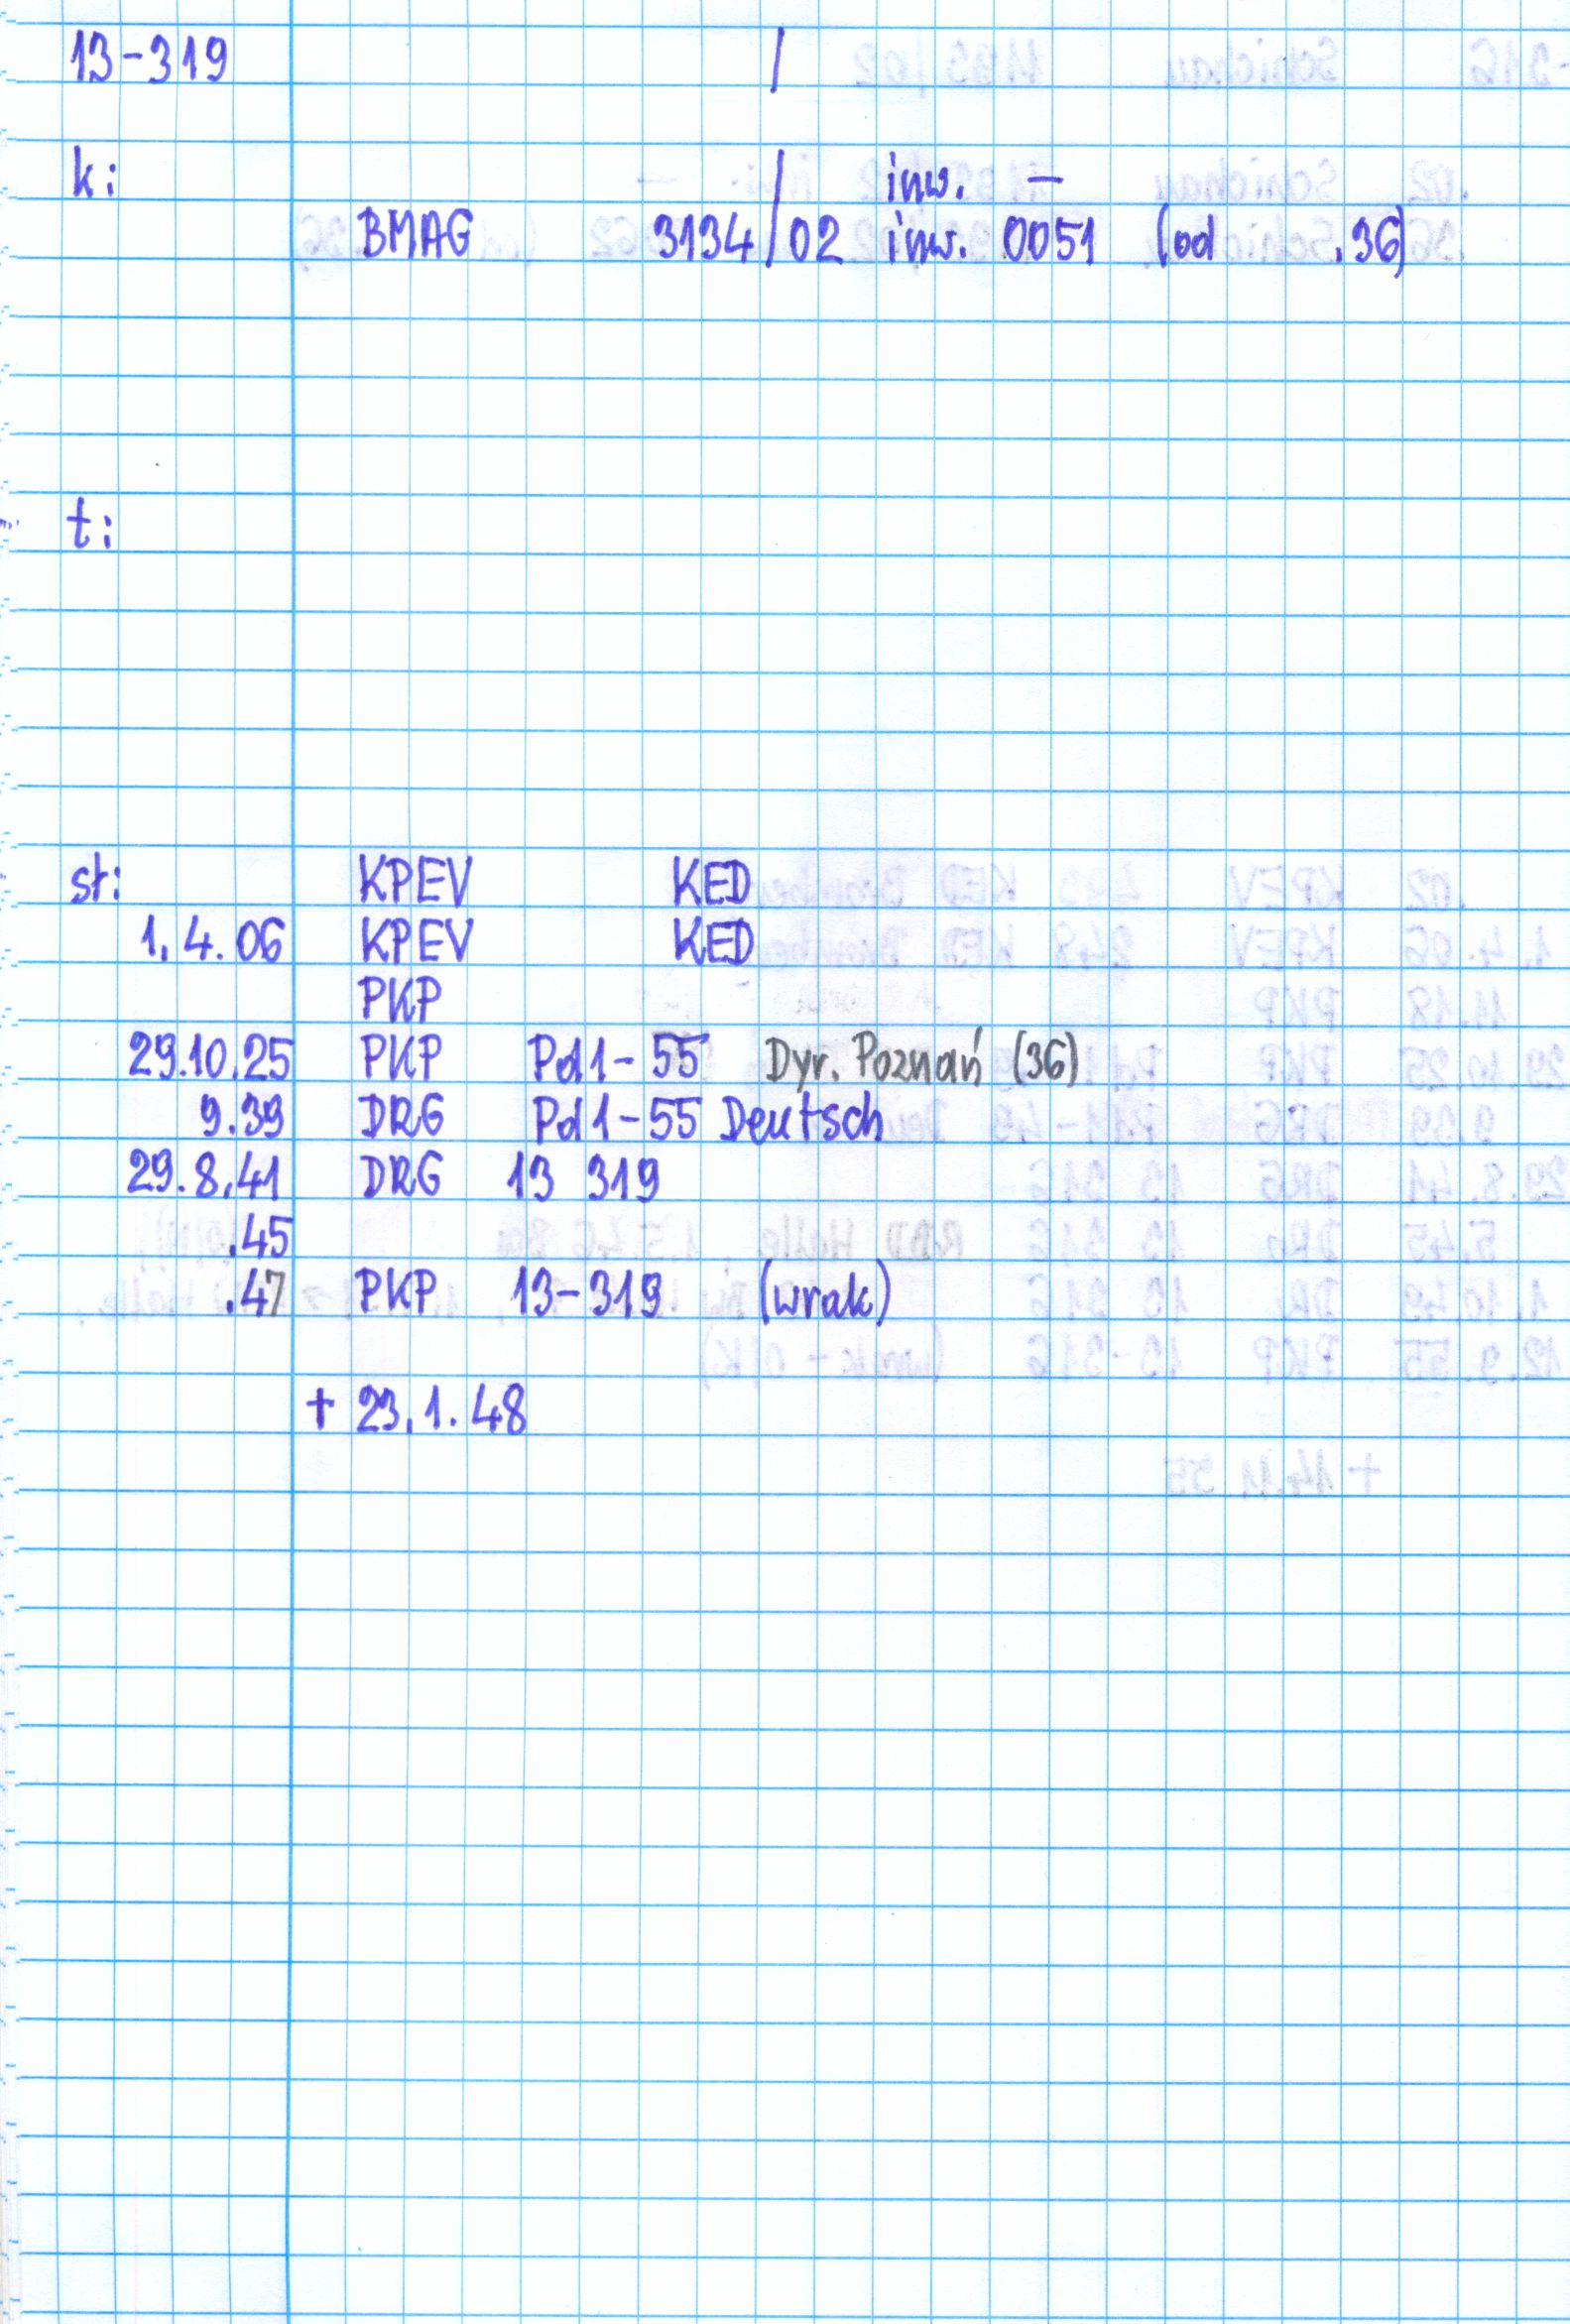 13-319 /
k: / inw. —
BMAG 3134/02 inw. 0051 (od .36)
t:
st: KPEV KED
1.4.06 KPEV KED
PKP
29.10.25 PKP Pd1-55 Dyr. Poznań (36)
9.39 DRG Pd1-55 Deutsch
29.8.41 DRG 13 319
.45
.47 PKP 13-319 (wrak)
+ 23.1.48